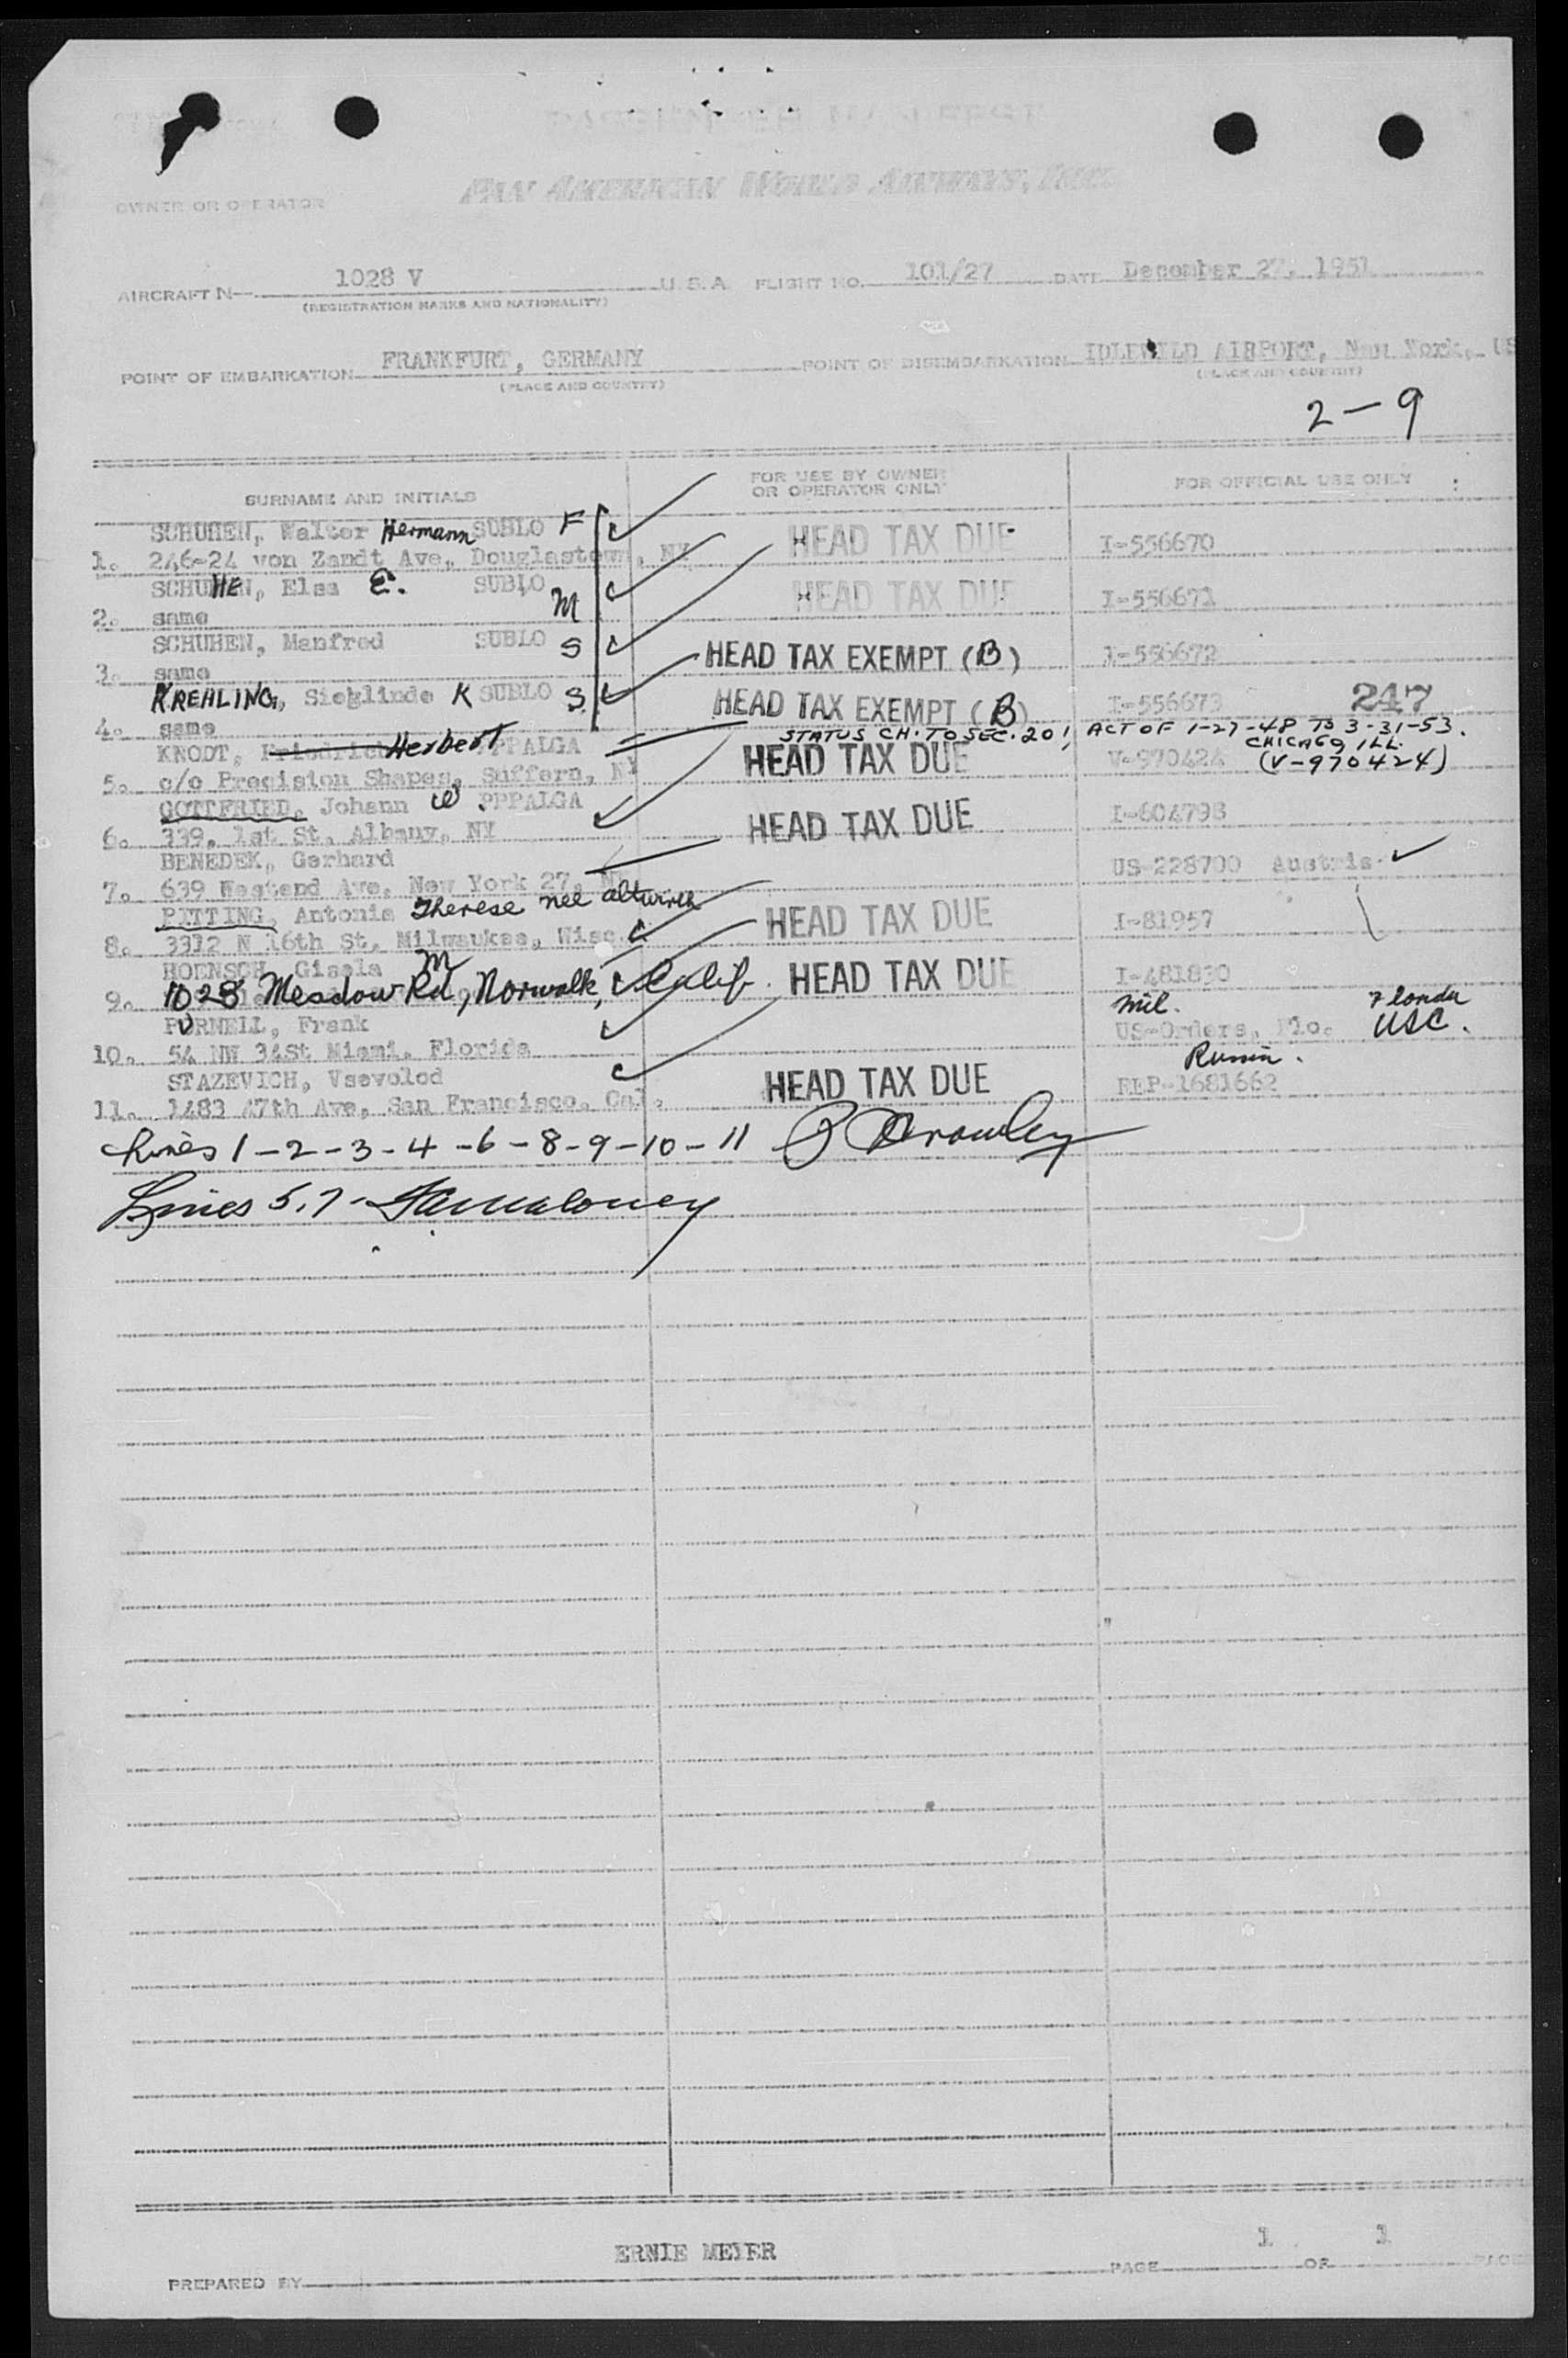 PASSENGER MANIFEST
OWNER OR OPERATOR PAN AMERICAN WORLD AIRWAYS, INC.
AIRCRAFT N— 1028 V U. S. A. FLIGHT NO. 101/27 DATE December 27, 1951
(REGISTRATION MARKS AND NATIONALITY)
POINT OF EMBARKATION FRANKFURT, GERMANY POINT OF DISEMBARKATION IDLEWILD AIRPORT, New York, (S
(PLACE AND COUNTRY) (PLACE AND COUNTRY)
2 — 9
SURNAME AND INITIALS FOR USE BY OWNER OR OPERATOR ONLY FOR OFFICIAL USE ONLY
SCHUHEN, Walter Hermann SUBLO F HEAD TAX DUE I-556670
1. 246-24 von Zandt Ave, Douglastown, NY
SCHUHEN, Elsa E. SUBLO M HEAD TAX DUE I-556671
2. same
SCHUHEN, Manfred SUBLO S HEAD TAX EXEMPT (B) I-556672
3. same
KREHLING, Sieglinde K SUBLO S. HEAD TAX EXEMPT (B) I-556673 247
4. same
STATUS CH. TO SEC. 201, ACT OF 1-27-48 TO 3-31-53.
CHICAGO, ILL.
KNODT, Friedrich Herbert PPPALGA HEAD TAX DUE V-970424 (V-970424)
5. c/o Precision Shapes, Suffern, NY
GOTTFRIED, Johann W PPPALGA HEAD TAX DUE I-604798
6. 339, 1st St, Albany, NY
BENEDEK, Gerhard US-228700 Austria
7. 639 Westend Ave, New York 27, NY
PITTING, Antonia Therese nee altwirth HEAD TAX DUE I-81957
8. 3312 N 16th St, Milwaukee, Wisc
ROENSCH, Gisela M HEAD TAX DUE I-481830
9. 1028 Meadow Rd, Norwalk, Calif.
mil. Florida
PURNELL, Frank US-Orders, Flo. USC.
10. 54 NW 34St Miami, Florida
STAZEVICH, Vsevolod HEAD TAX DUE REP-1681662
11. 1483 47th Ave, San Francisco, Cal.
Lines 1-2-3-4-6-8-9-10-11 Crowley
Lines 5,7- Maloney
ERNIE MEYER
PREPARED BY PAGE 1 OF 1 PAGE